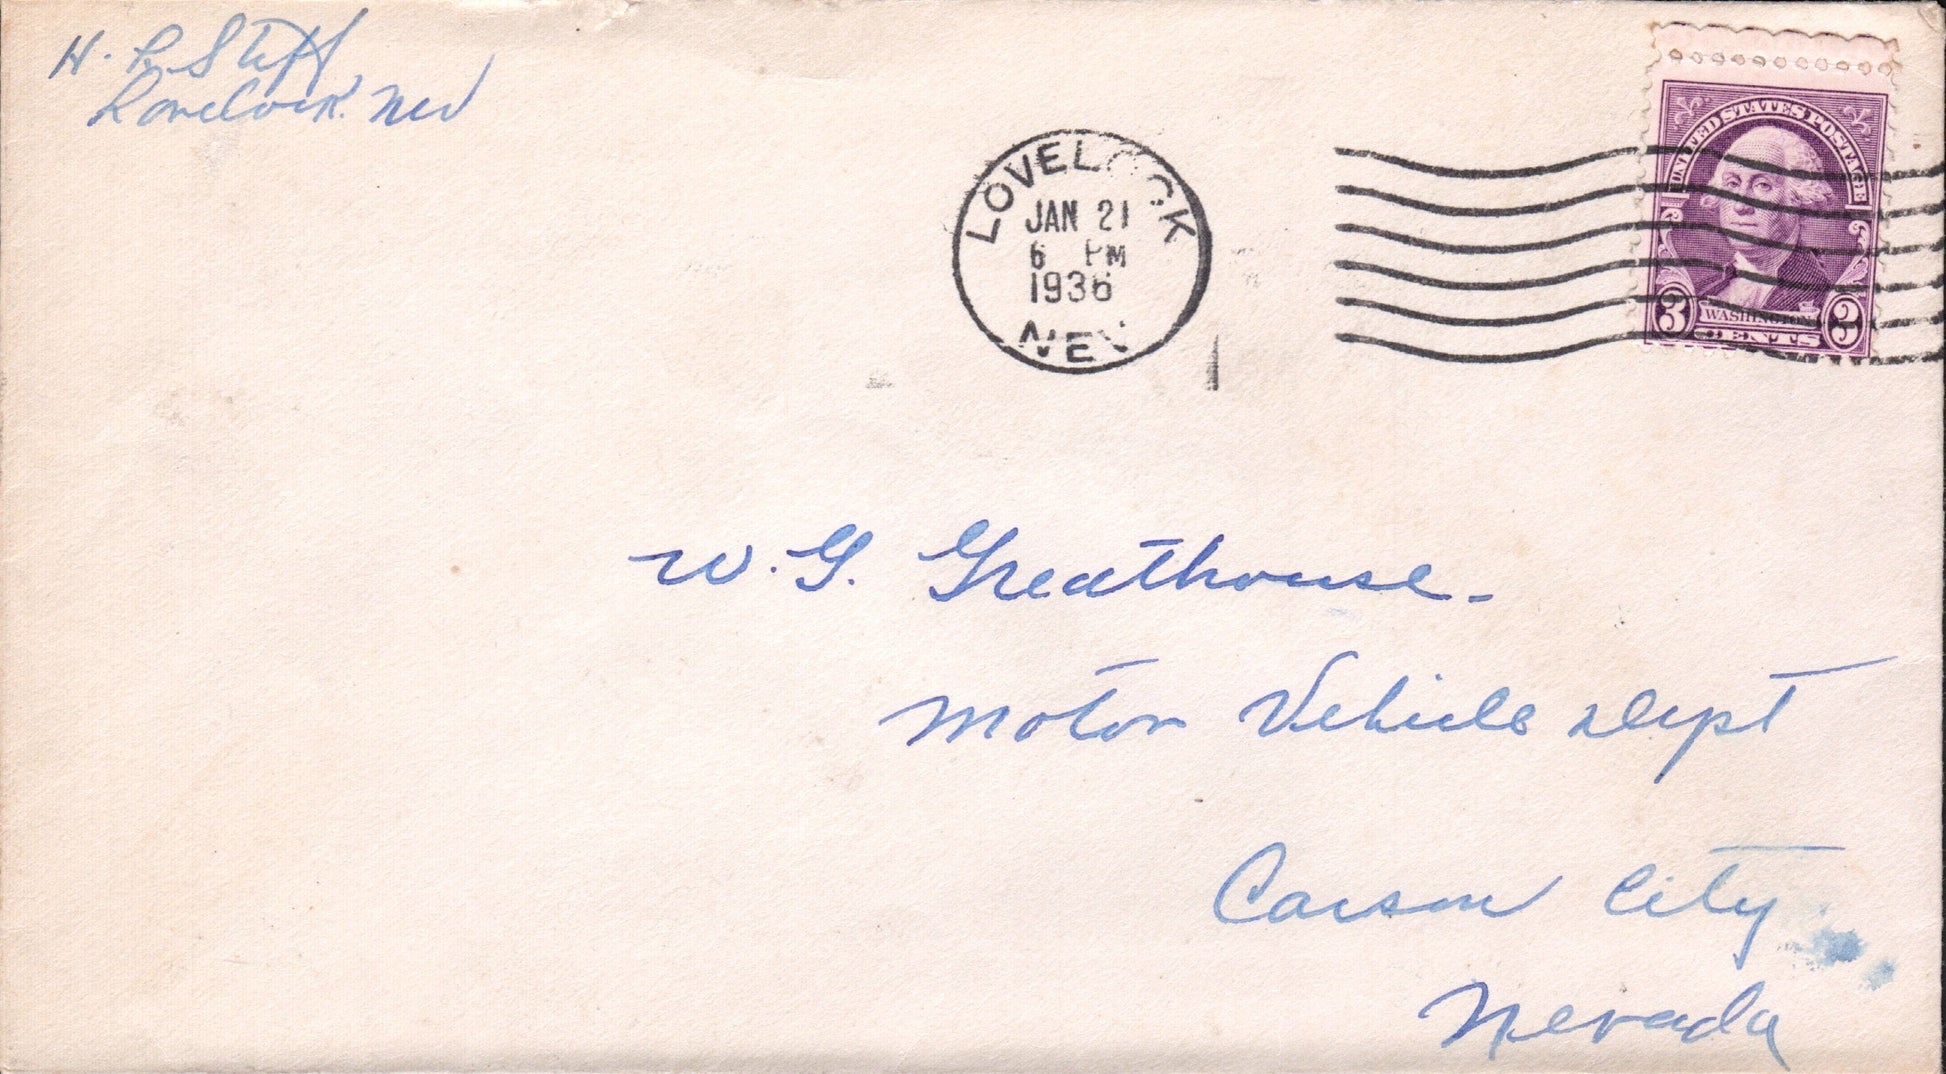 H. R. Steff
Lovelock. Nev
LOVELOCK
JAN 21
6 PM
1936
NEV
UNITED STATES POSTAGE
3 WASHINGTON 3
CENTS
W. G. Greathouse.
Motor Vehicle Dept
Carson City
Nevada